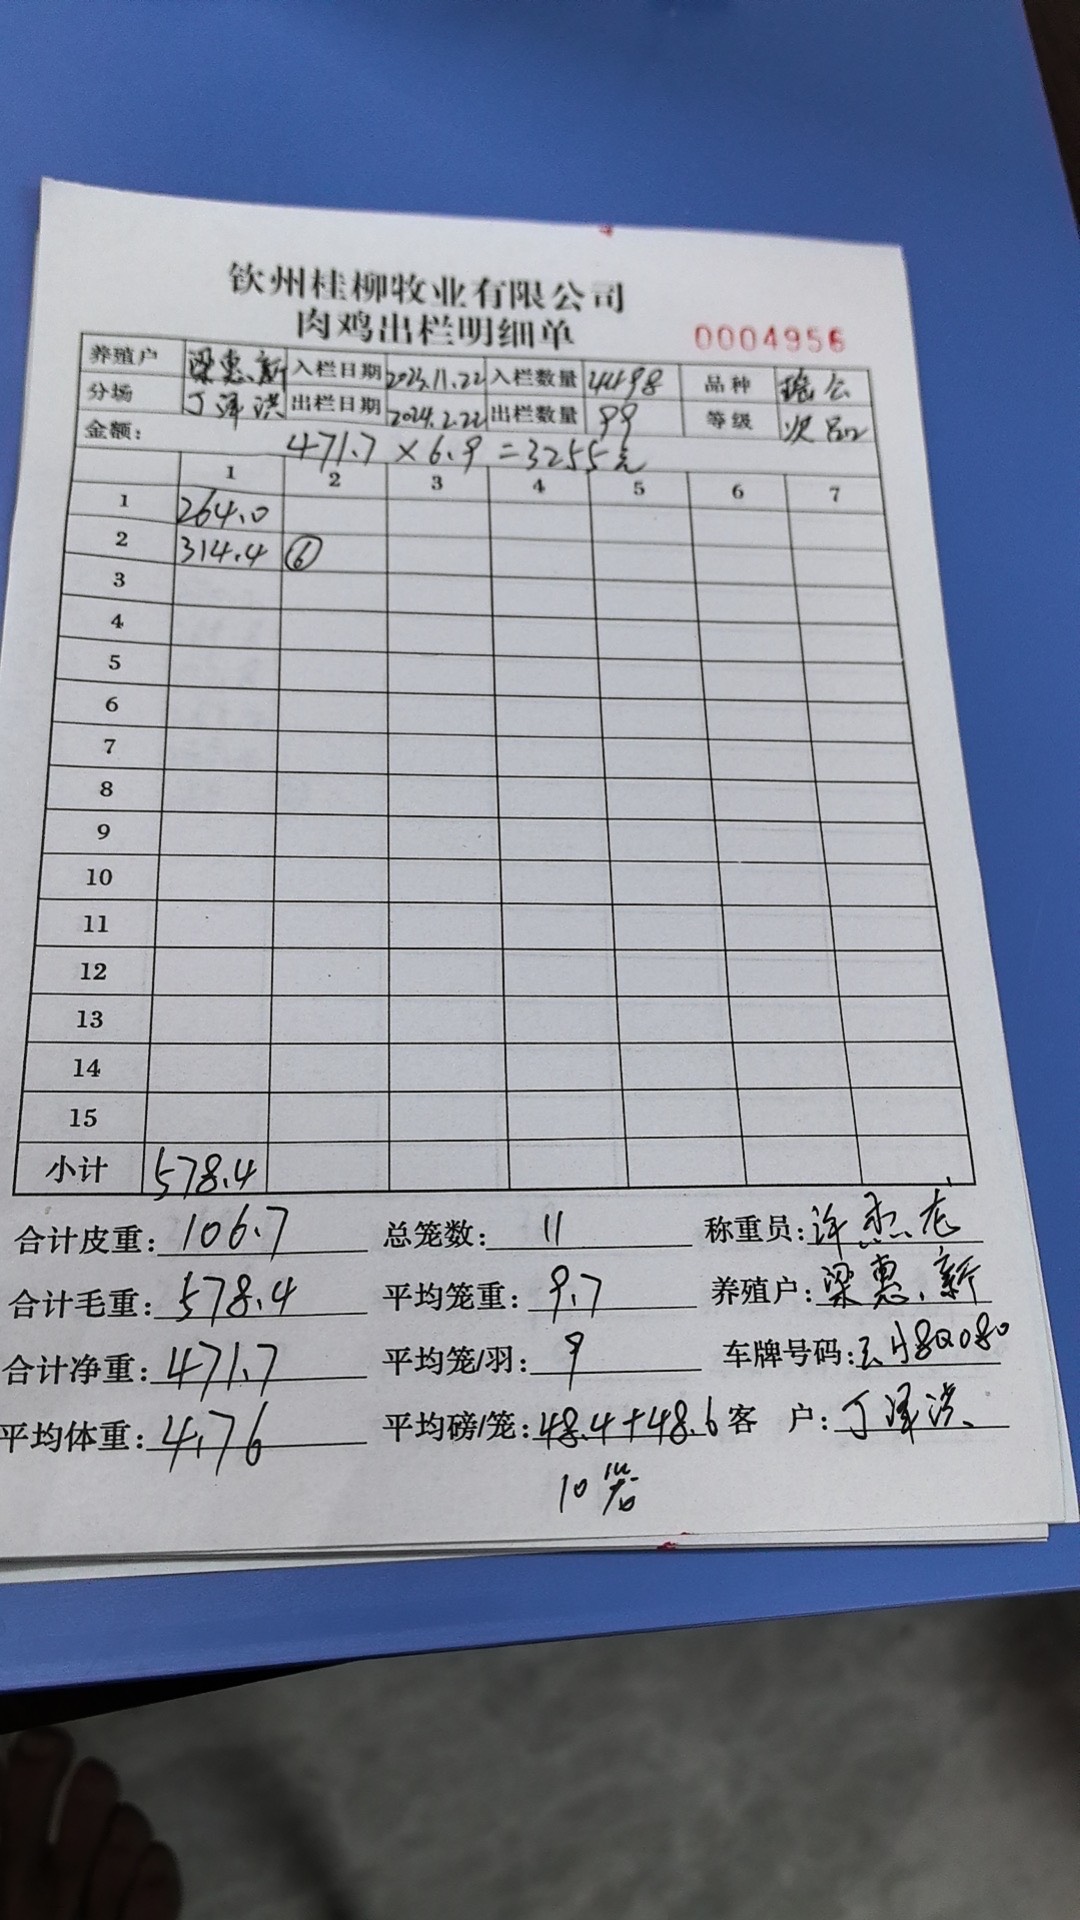 钦州桂柳牧业有限公司
肉鸡出栏明细单 0004956
养殖户 梁惠新 入栏日期 2023.11.22 入栏数量 4498 品种 瑶公
分场 丁泽洪 出栏日期 2024.2.22 出栏数量 99 等级 次品
金额: 471.7×6.9=3255元
1 2 3 4 5 6 7
1 264.0
2 314.4 ⑥
3
4
5
6
7
8
9
10
11
12
13
14
15
小计 578.4
合计皮重: 106.7 总笼数: 11 称重员: 许杰龙
合计毛重: 578.4 平均笼重: 9.7 养殖户: 梁惠新
合计净重: 471.7 平均笼/羽: 9 车牌号码:
平均体重: 4.76 平均磅/笼: 48.4+48.6 客 户: 丁泽洪
10